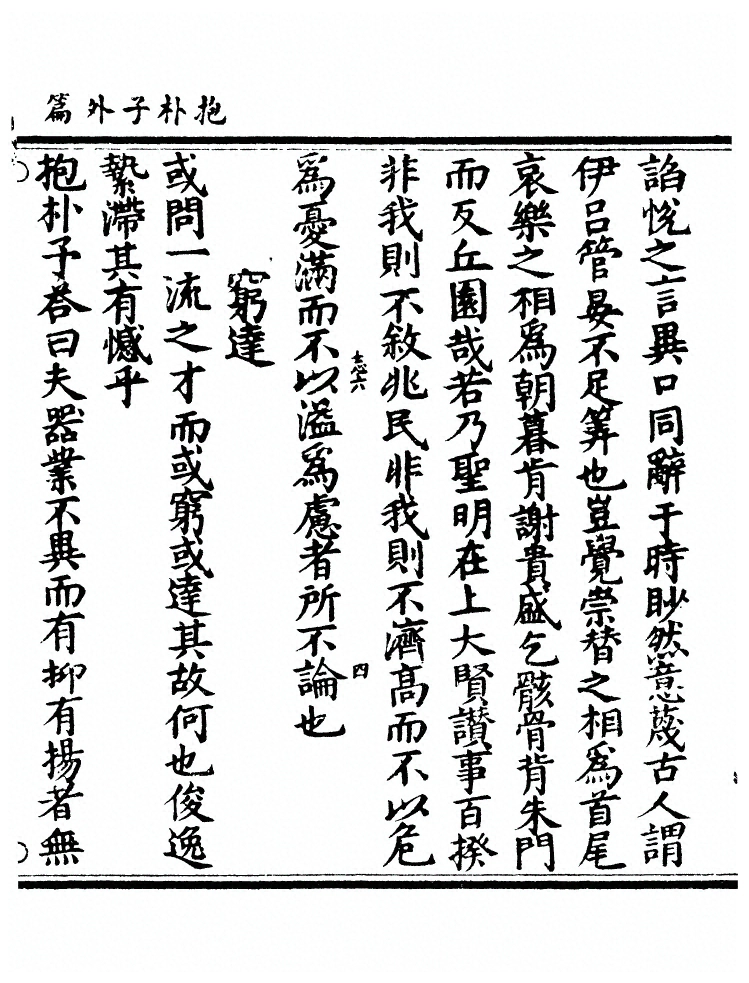 抱朴子外篇
諂悅之言異口同辭于時眇然意蔑古人謂
伊呂管晏不足筭也豈覺崇替之相為首尾
哀樂之相為朝暮肯謝貴盛乞骸骨背朱門
而反丘園哉若乃聖明在上大賢讃事百揆
非我則不敘兆民非我則不濟高而不以危
志六
四
為憂滿而不以溢為慮者所不論也
窮達
或問一流之才而或窮或達其故何也俊逸
縶滯其有憾乎
抱朴子荅曰夫器業不異而有抑有揚者無